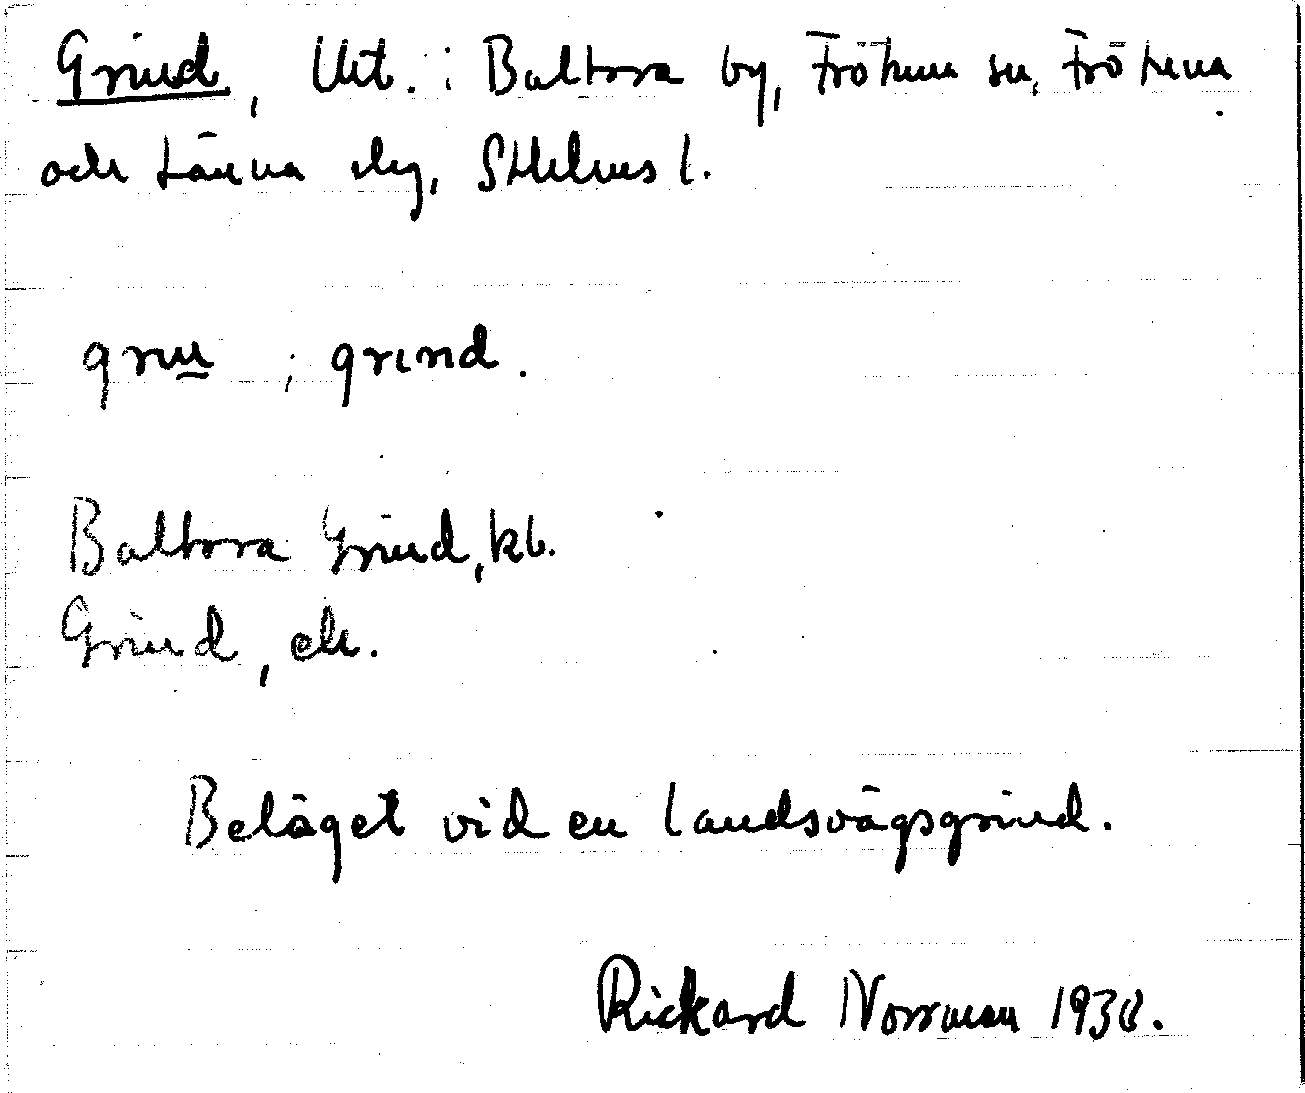 Grind, Utt. i Baltora by, Frötuna sn, Frötuna
och Länna slg, Sthlms l.
grin ; grınd.
Baltora Grind, kb.
Grind, ek.
Beläget vid en landsvägsgrind.
Rickard Norrman 1938.